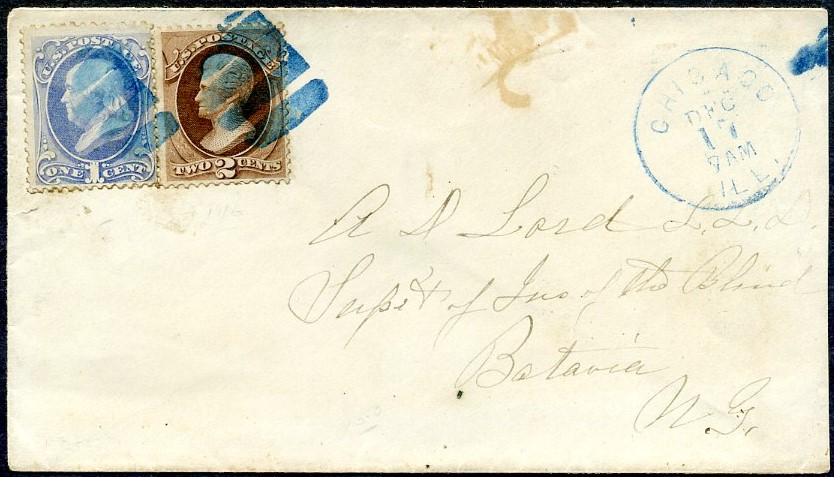 U.S. POSTAGE
ONE 1 CENT
U.S. POSTAGE
TWO 2 CENTS
CHICAGO
DEC
17
7AM
ILL.
A D Lord L.L.D.
Supt of Ins of the Blind
Batavia
N.Y.